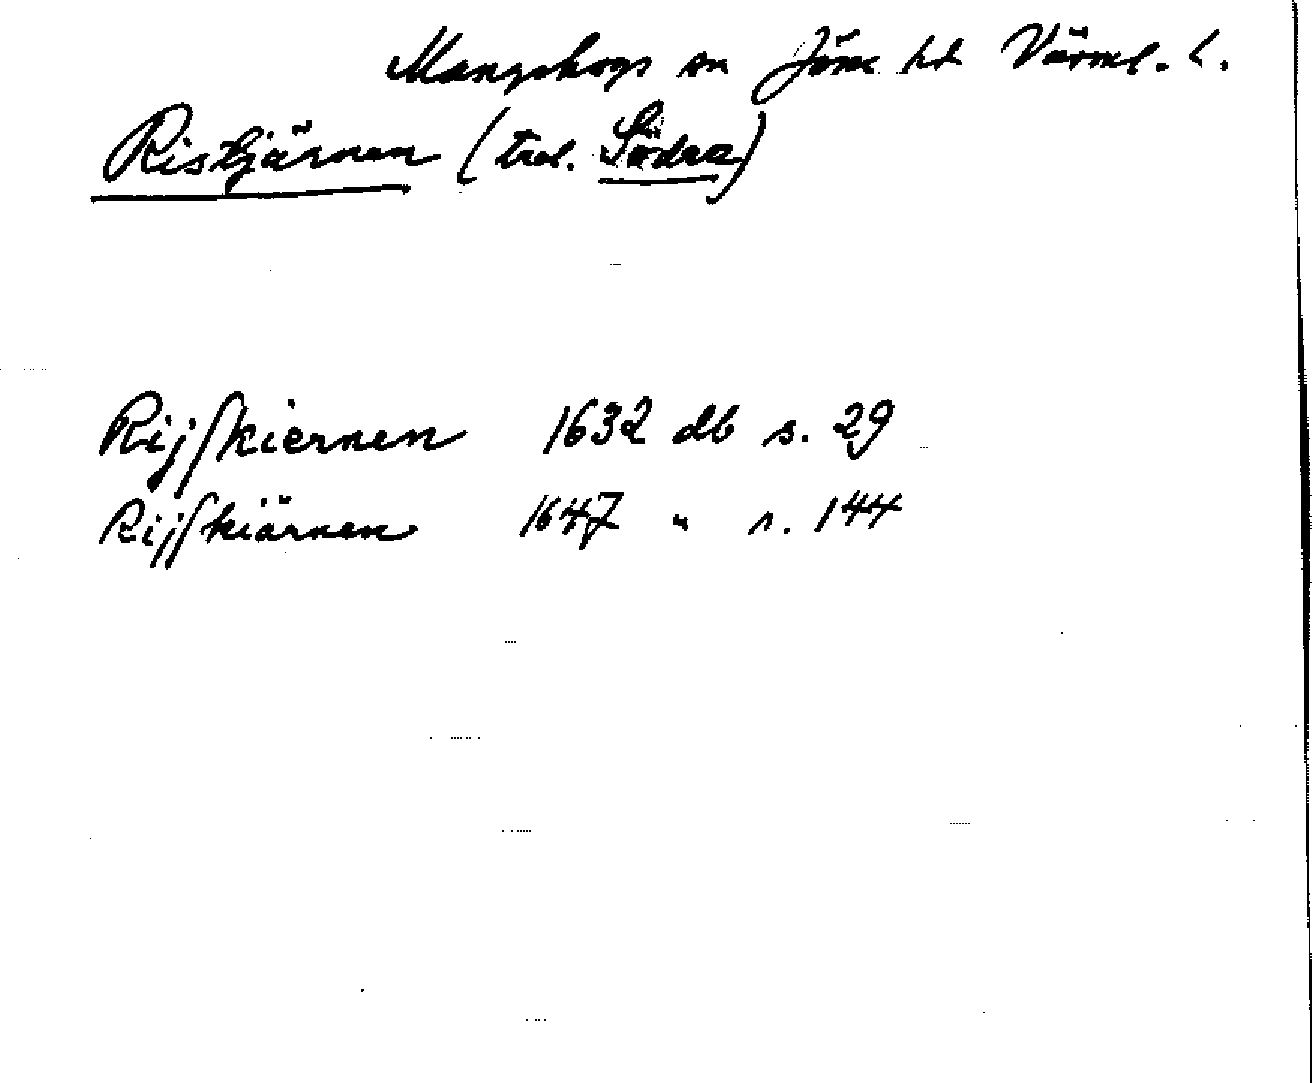 Mangskogs sn Jösse hd Värml. l.
Ristjärnen (trol. Södra)
Rijsskiernen 1632 db s. 29
Rijsskiärnen 1647 " s. 144